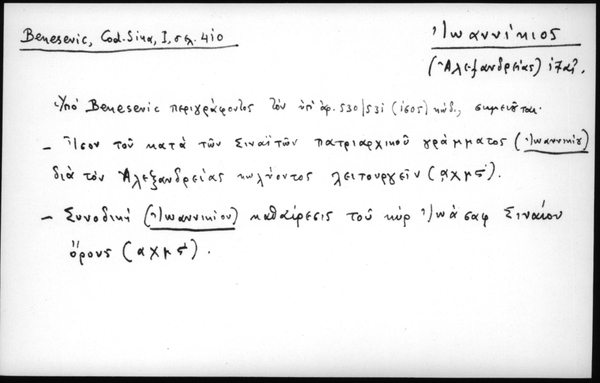 Benesevic, Cod. Sina, I, σελ. 410
Ἰωαννίκιος
(Ἀλεξανδρείας)
Ὑπό Benesevic περιγράφοντος τὸν ὑπ' ἀρ. 530/531 (1505) κώδ., σημειοῦται·
- Ἴσον τοῦ κατὰ τῶν Σιναϊτῶν πατριαρχικοῦ γράμματος (Ἰωαννικίου)
διὰ τὸν Ἀλεξανδρείας κωλύοντος λειτουργεῖν (αχμς΄).
- Συνοδικὴ (Ἰωαννικίου) καθαίρεσις τοῦ κὺρ Ἰωάσαφ Σιναίου
ὄρους (αχμς΄).